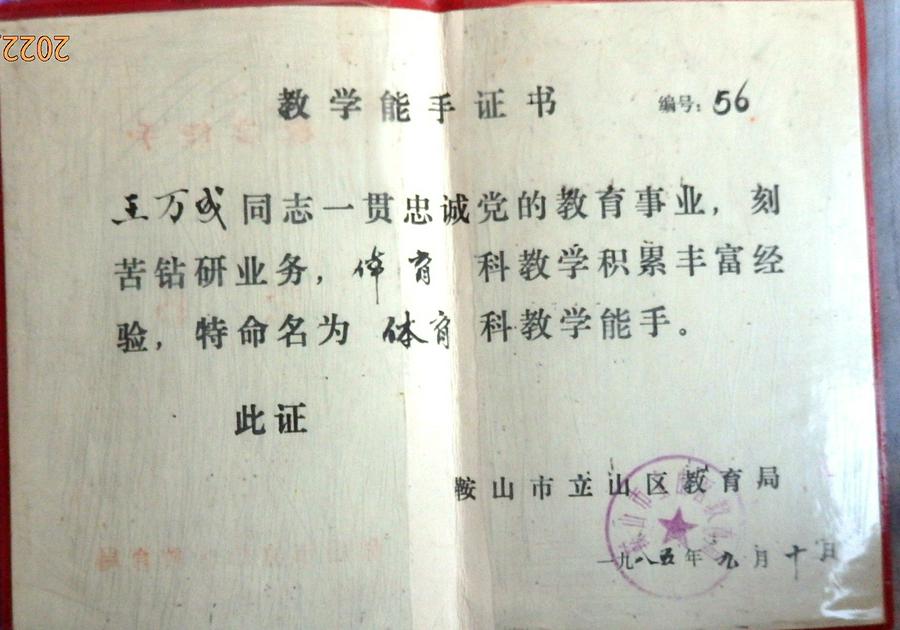 2022
教学能手证书 编号:56
王万成同志一贯忠诚党的教育事业,刻
苦钻研业务,体育 科教学积累丰富经
验,特命名为 体育 科教学能手。
此证
鞍山市立山区教育局
一九八五年九月十日